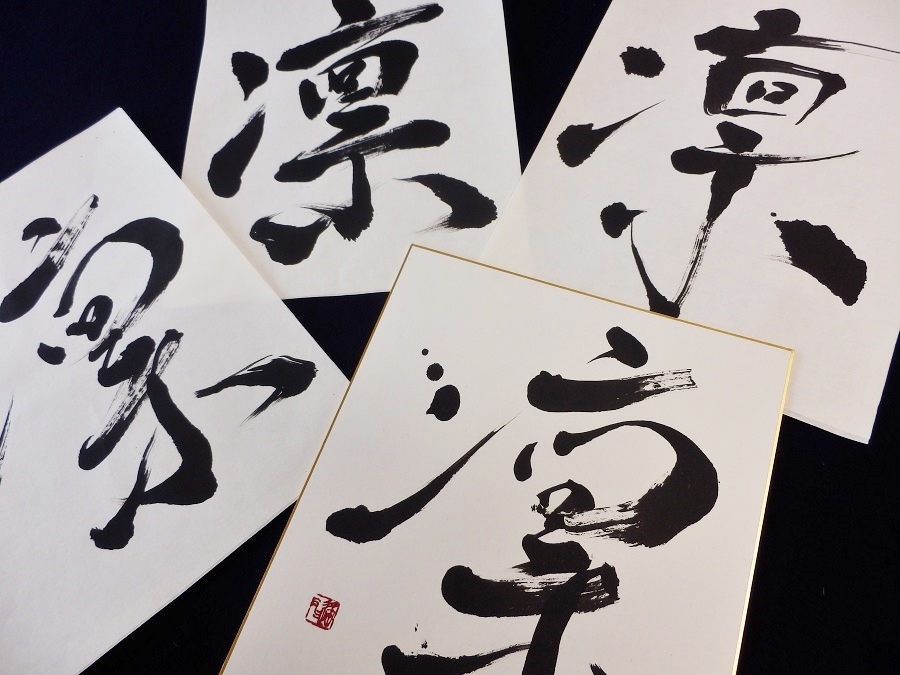 凛
凛
凛
凛